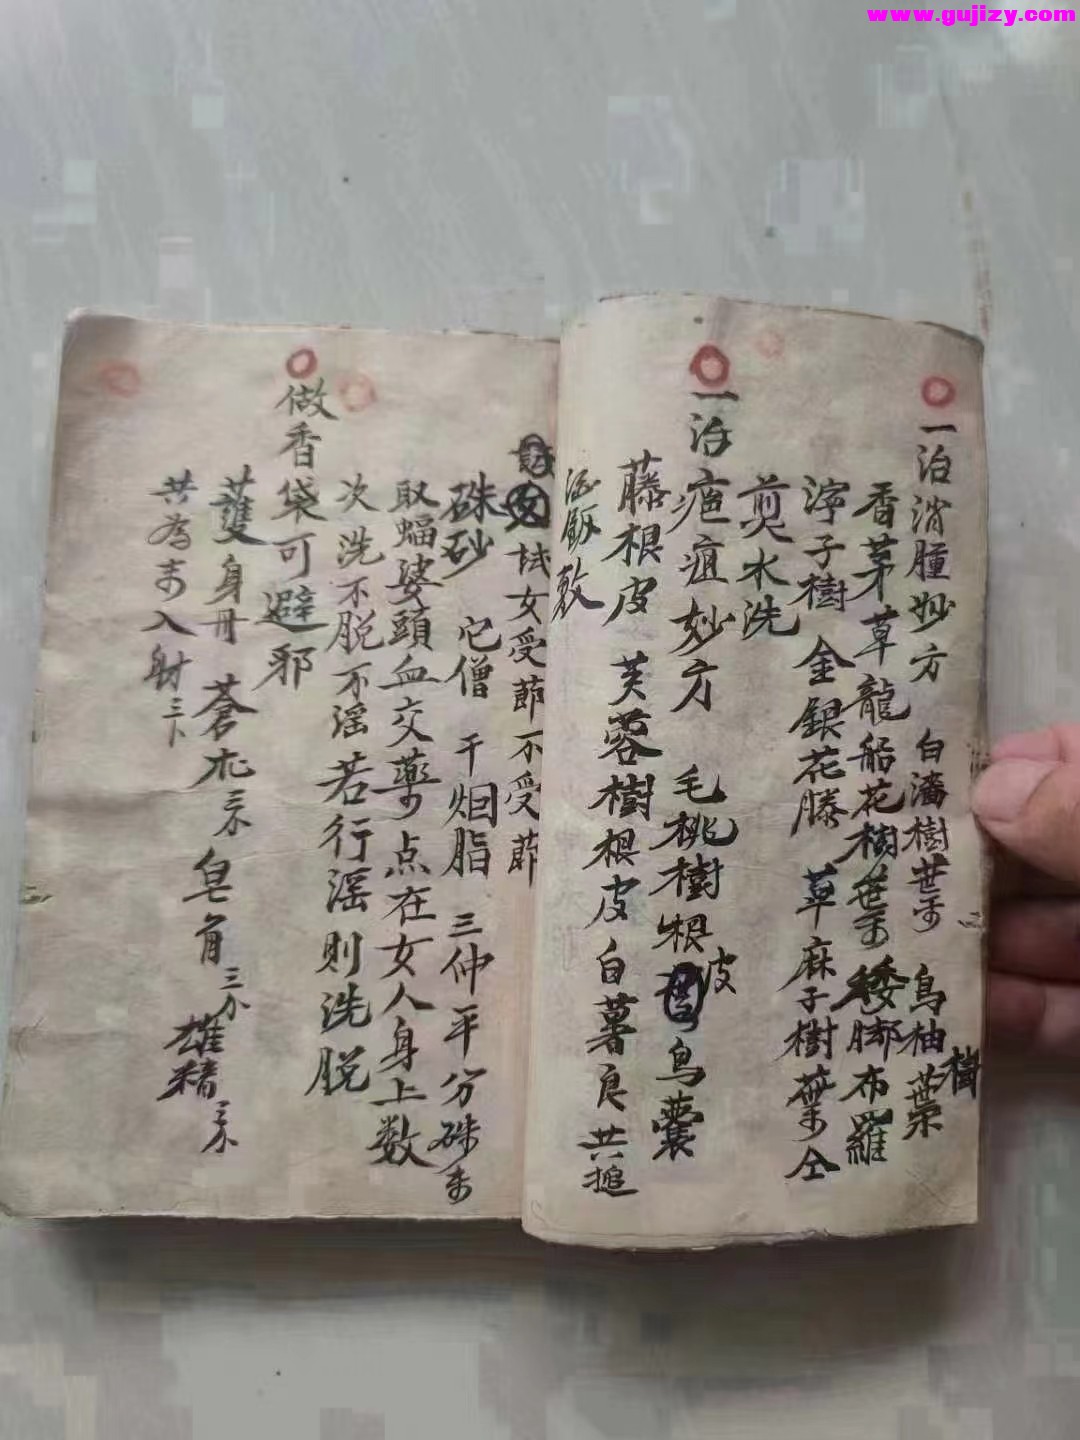 www.gujizy.com
一治消腫妙方 白瀋樹葉 烏柚樹葉
香茅草龍船花樹葉矮脚布羅
渟子樹 金銀花藤 草麻子樹葉仝
煎水洗
一治疤疽妙方 毛桃樹根皮 烏蘞
藤根皮 芙蓉樹根皮白薯良共搥
敷
試女受節不受節
硃砂 它僧 干烟脂 三仲平分硃末
取蝠婆頭血交藥点在女人身上数
次洗不脱不滛若行滛則洗脱
做香袋可避邪
身丹 蒼朮 皂角三分 雄精
共為末入射三卜